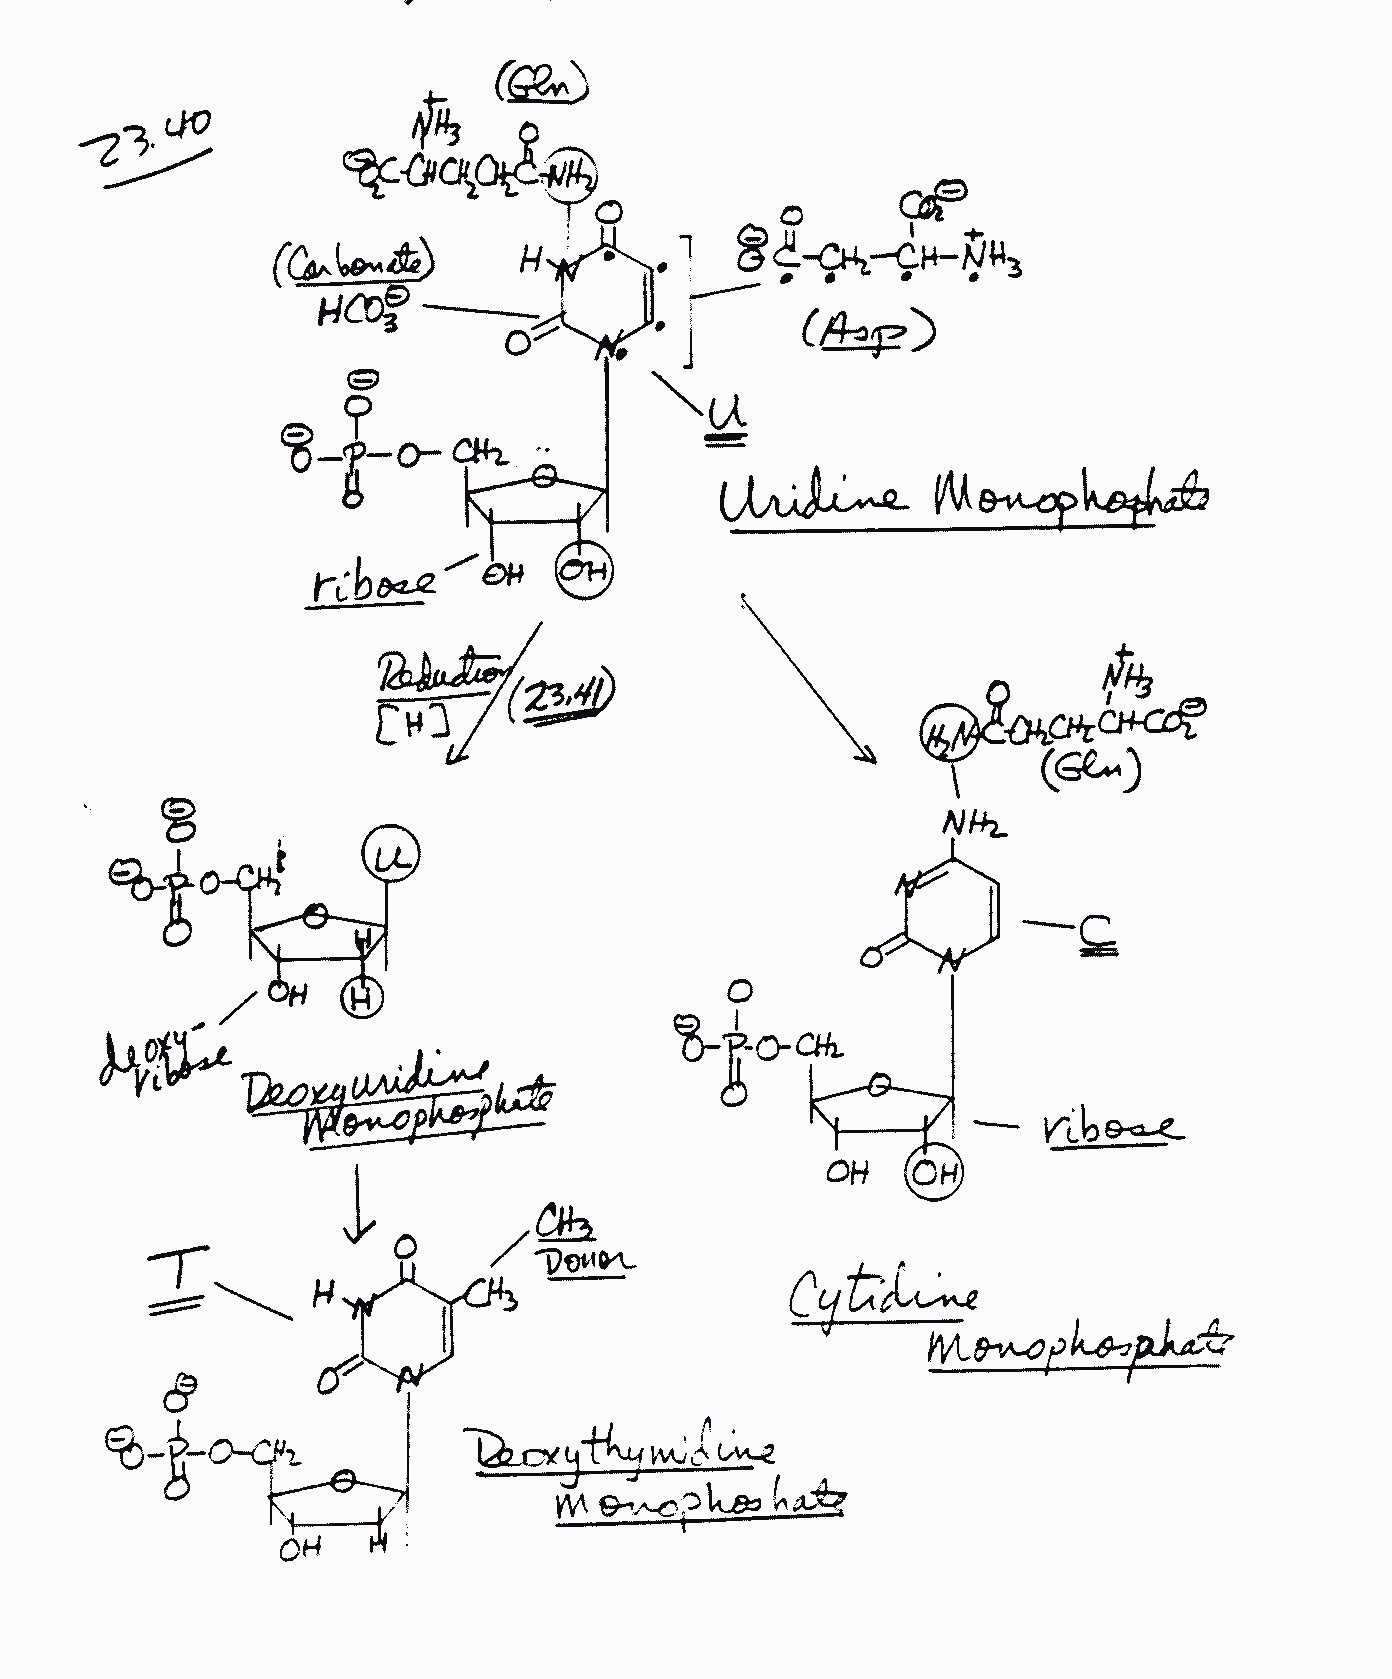 23.40
(Gln)
NH3 +
O
⊖O2C-CHCH2CH2C-NH2
O
CO2⊖
(Carbonate)
HCO3⊖
H
N
O
N
⊖O
O
C-CH2-CH-NH3 +
(Asp)
U
⊖
O
⊖
O-P-O-CH2
O
O
Uridine Monophophate
ribose
OH
OH
Reduction
[H]
(23.41)
NH3 +
O
H2N-CCH2CH2CH-CO2⊖
(Gln)
NH2
N
O
N
C
⊖
O
⊖O-P-O-CH2
O
U
O
H
OH
H
deoxy-
ribose
Deoxyuridine
Monophosphate
O
⊖
O-P-O-CH2
O
O
ribose
OH
OH
Cytidine
Monophosphate
T
CH3
Donor
O
H
N
CH3
O
N
O⊖
⊖O-P-O-CH2
O
O
OH
H
Deoxythymidine
Monophoshate